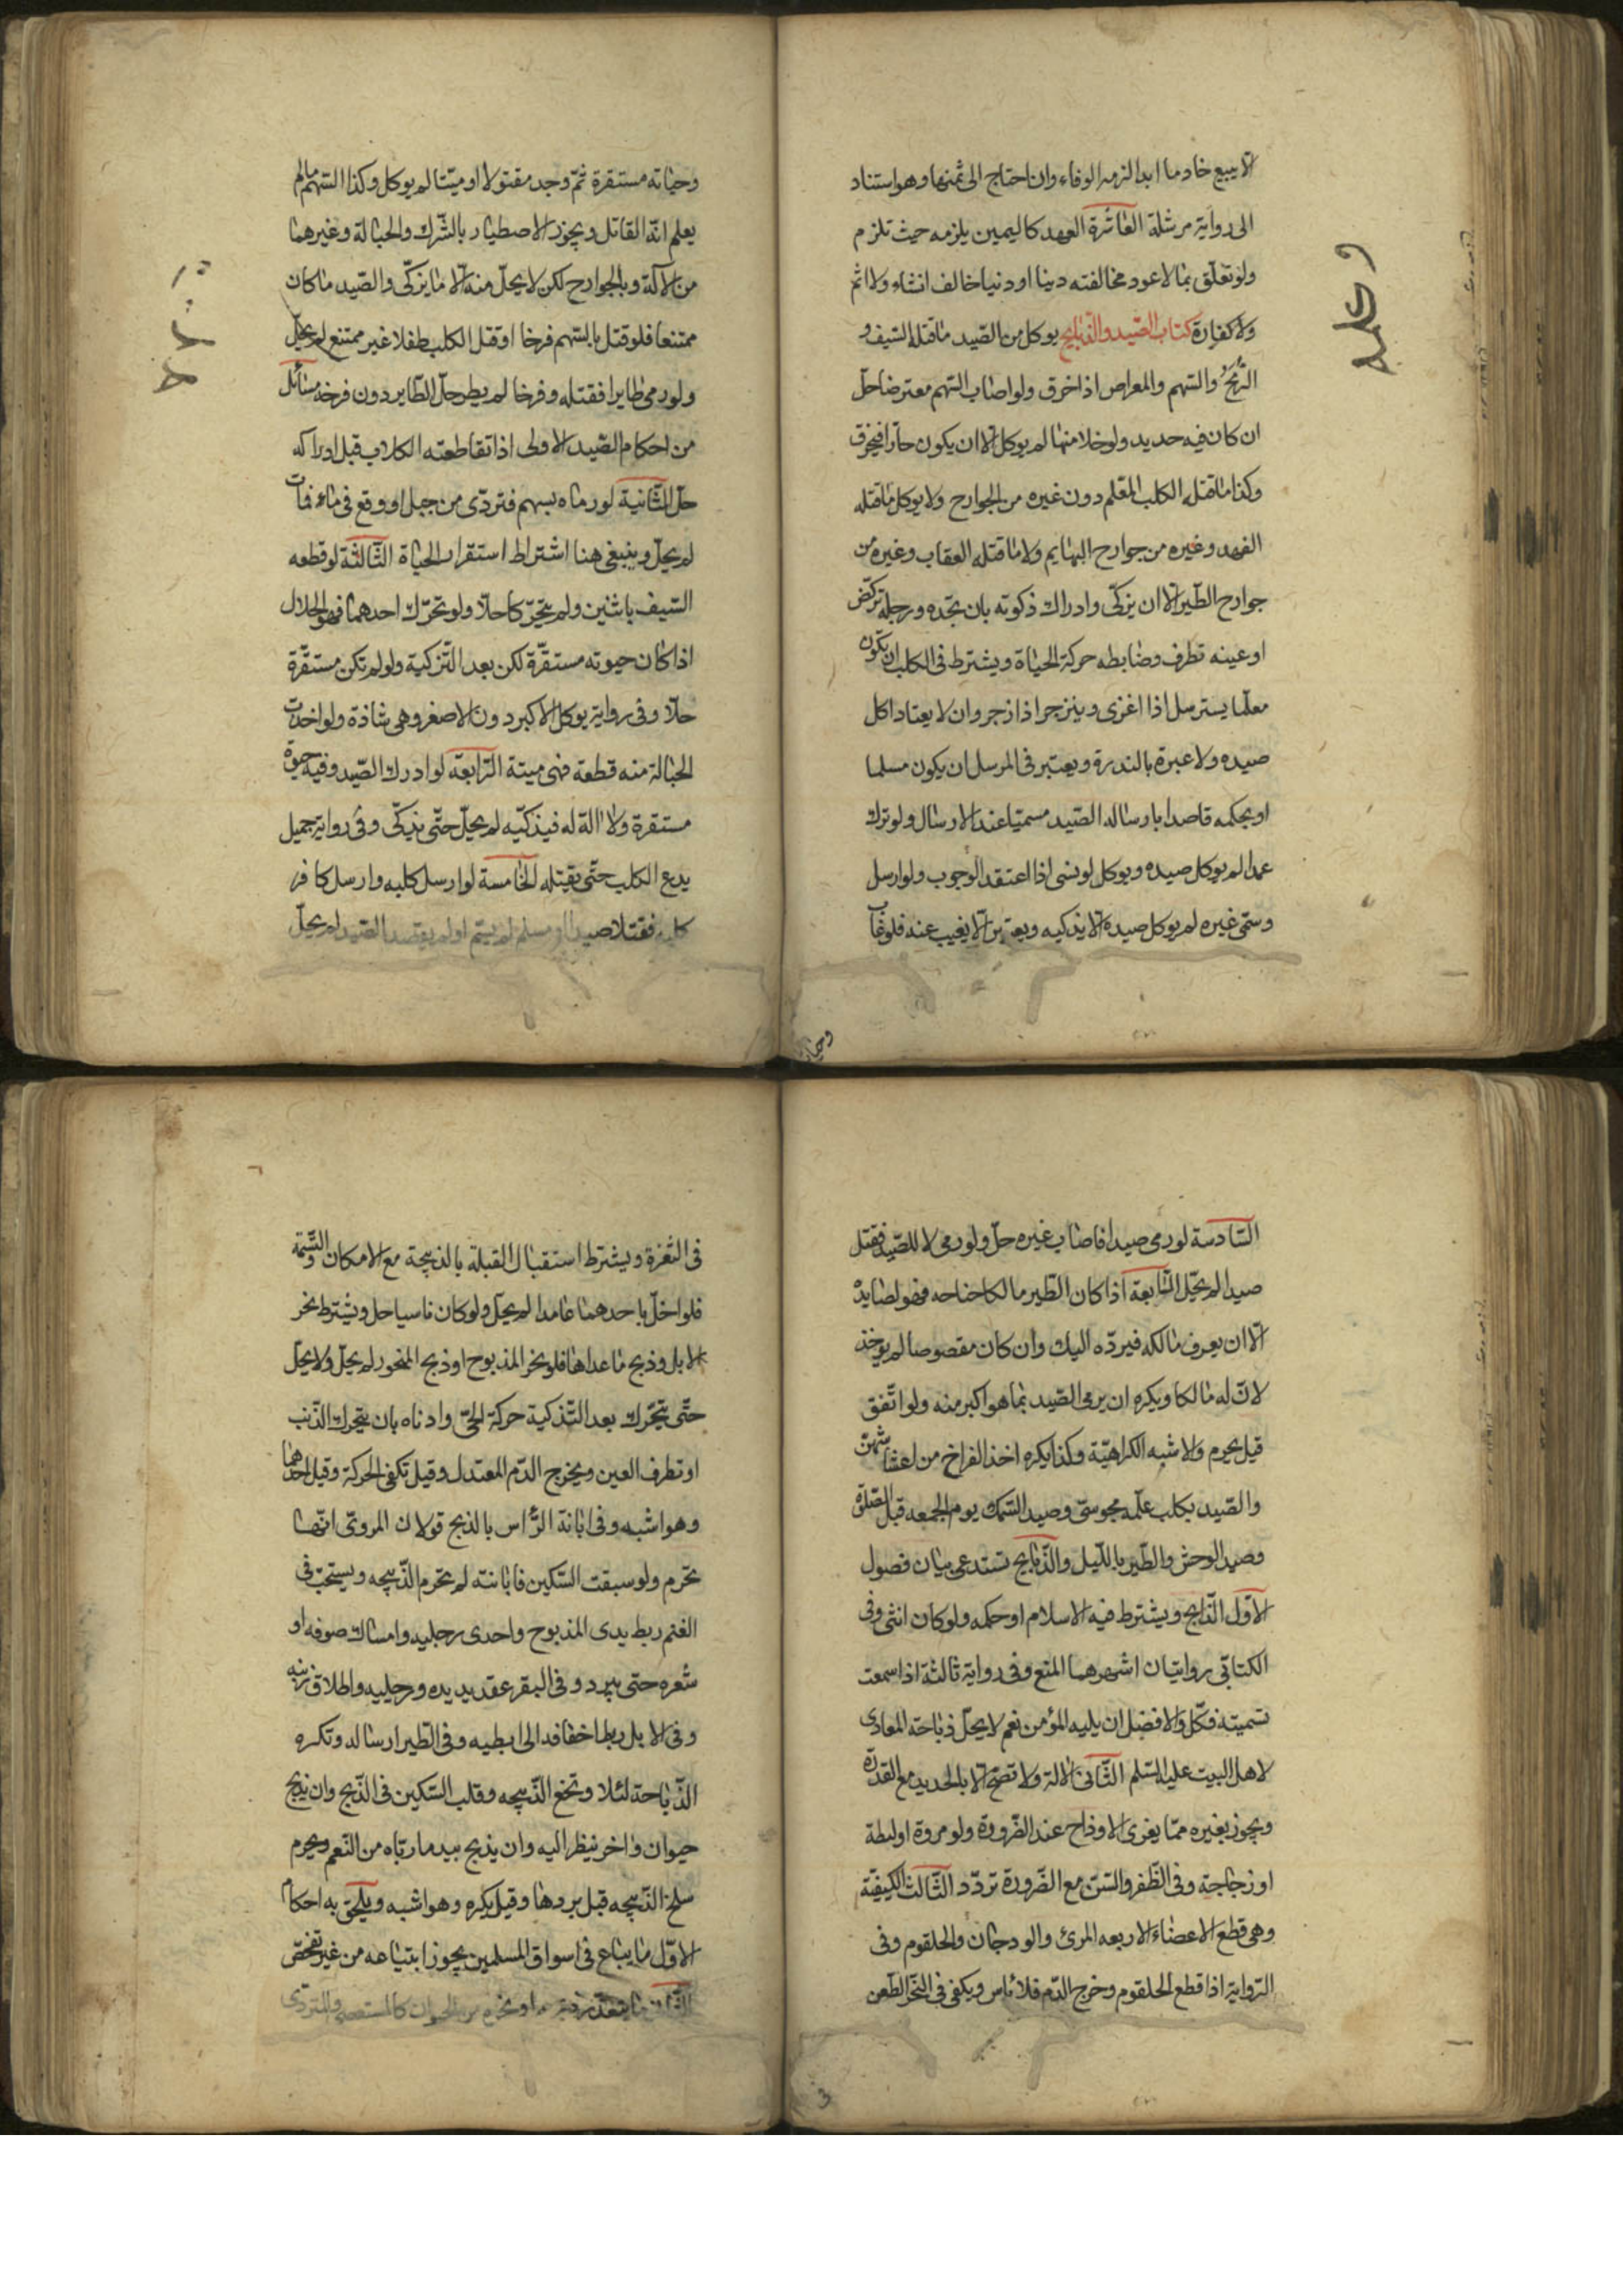 الا يبيع خادما ابدا لزمه الوفاء وان احتاج الى ثمنها وهو استناد
الى رواية مرسلة العاشرة العهد كاليمين يلزمه حيث تلزم
ولو تعلق بما الاعود مخالفته دينا او دنيا خالف انشاء ولا اثم
ولا كفارة كتاب الصيد والذبايح يوكل من الصيد ما قتله السيف و
الرمح والسهم والمعراض اذا خرق ولو اصاب السهم معترضا حل
ان كان فيه حديد ولو خلا منها لم يوكل الا ان يكون حادا فيخرق
وكذا ما قتله الكلب المعلم دون غيره من الجوارح ولا يوكل ما قتله
الفهد وغيره من جوارح البهايم ولا ما قتله العقاب وغيره من
جوارح الطير الا ان يزكى وادراك ذكوته بان تجده ورجله تركض
او عينه تطرف وضابطه حركة الحياة ويشترط فى الكلب ان يكون
معلما يسترسل اذا اغرى وينزجر اذا زجر وان لا يعتاد اكل
صيده ولا عبرة بالندرة ويعتبر فى المرسل ان يكون مسلما
او بحكمه قاصدا بارساله الصيد مسميا عند الارسال ولو ترك
عمدا لم يوكل صيده ويوكل لو نسى اذا اعتقد الوجوب ولو ارسل
وسمى غيره لم يوكل صيده الا يذكيه ويعتبر الا يغيب عنه فلو غاب
وحيا
وحياته مستقرة ثم وجد مقتولا او ميتا لم يوكل وكذا السهم مالم
يعلم انه القاتل ويجوز الاصطياد بالشرك والحبالة وغيرهما
من الآلة وبالجوارح لكن لا يحل منه الا ما يزكى والصيد ما كان
ممتنعا فلو قتل بالسهم فرخا او قتل الكلب طفلا غير ممتنع لم يحل
ولو رمى طايرا فقتله وفرخا لم يطر حل الطاير دون فرخه مسائل
من احكام الصيد الاولى اذا تقاطعته الكلاب قبل ادراكه
حل الثانية لو رماه بسهم فتردى من جبل او وقع فى ماء فمات
لم يحل وينبغى هنا اشتراط استقرار الحياة الثالثة لو قطعه
السيف باثنين ولم يتحركا حلا ولو تحرك احدهما فهو الحلال
اذا كان حيوته مستقرة لكن بعد التزكية ولو لم تكن مستقرة
حلا وفى رواية يوكل الاكبر دون الاصغر وهى شاذة ولو اخذت
الحبالة منه قطعة فهى ميتة الرابعة لو ادرك الصيد وفيه حيوة
مستقرة ولا الة له فيذكيه لم يحل حتى يذكى وفى رواية جميل
يدع الكلب حتى يقتله الخامسة لو ارسل كلبه وارسل كافر
كلبه فقتلا صيدا او مسلم لم يسم او لم يقصد الصيد لم يحل
السادسة لو رمى صيدا فاصاب غيره حل ولو رمى لا للصيد فقتل
صيدا لم يحل السابعة اذا كان الطير مالكا جناحه فهو لصايده
الا ان يعرف مالكه فيرده اليك وان كان مقصوصا لم يوخذ
لان له مالكا ويكره ان يرمى الصيد بما هو اكبر منه ولو اتفق
قيل يحرم والاشبه الكراهية وكذا يكره اخذ الفراخ من اعشاشهن
والصيد بكلب علمه مجوسى وصيد السمك يوم الجمعه قبل الصلوة
وصيد الوحش والطير بالليل والذبايح تستدعى بيان فصول
الاول الذابح ويشترط فيه الاسلام او حكمه ولو كان انثى وفى
الكتابى روايتان اشهرهما المنع وفى رواية ثالثة اذا سمعت
تسميته فكل والافضل ان يليه المؤمن نعم لا يحل ذباحة المعادى
لاهل البيت عليه السلم الثانى الالة ولا تصح الا بالحديد مع القدرة
ويجوز بغيره مما يفرى الاوداج عند الضرورة ولو مروة او ليطة
او زجاجة وفى الظفر والسن مع الضرورة تردد الثالث الكيفية
وهى قطع الاعضاء الاربعه المرئ والودجان والحلقوم وفى
الرواية اذا قطع الحلقوم وخرج الدم فلا باس ويكفى فى النحر الطعن
فى الثغرة ويشترط استقبال القبلة بالذبيحة مع الامكان والتسمية
فلو اخل باحدهما عامدا لم يحل ولو كان ناسيا حل ويشترط نحر
الابل وذبح ما عداها فلو نحر المذبوح او ذبح المنحور لم يحل ولا يحل
حتى يتحرك بعد التذكية حركة الحى وادناه بان يتحرك الذنب
او تطرف العين ويخرج الدم المعتدل وقيل تكفى الحركة وقيل احدهما
وهو اشبه وفى ابانة الرأس بالذبح قولان المروى انها
تحرم ولو سبقت السكين فابانته لم تحرم الذبيحه ويستحب فى
الغنم ربط يدى المذبوح واحدى رجليه وامساك صوفه او
شعره حتى يبرد وفى البقر عقد يديه ورجليه واطلاق ذنبه
وفى الابل ربط اخفافه الى ابطيه وفى الطير ارساله وتكره
الذباحة لئلا ونخع الذبيحه وقلب السكين فى الذبح وان يذبح
حيوان واخر ينظر اليه وان يذبح بيده ما رباه من النعم ويحرم
سلخ الذبيحه قبل بردها وقيل يكره وهو اشبه ويلحق به احكام
الاول ما يباع فى اسواق المسلمين يجوز ابتياعه من غير تفحص
الثانى ما يتعذر ذبحه او نحره من الحيوان كالمستعصى والمتردى